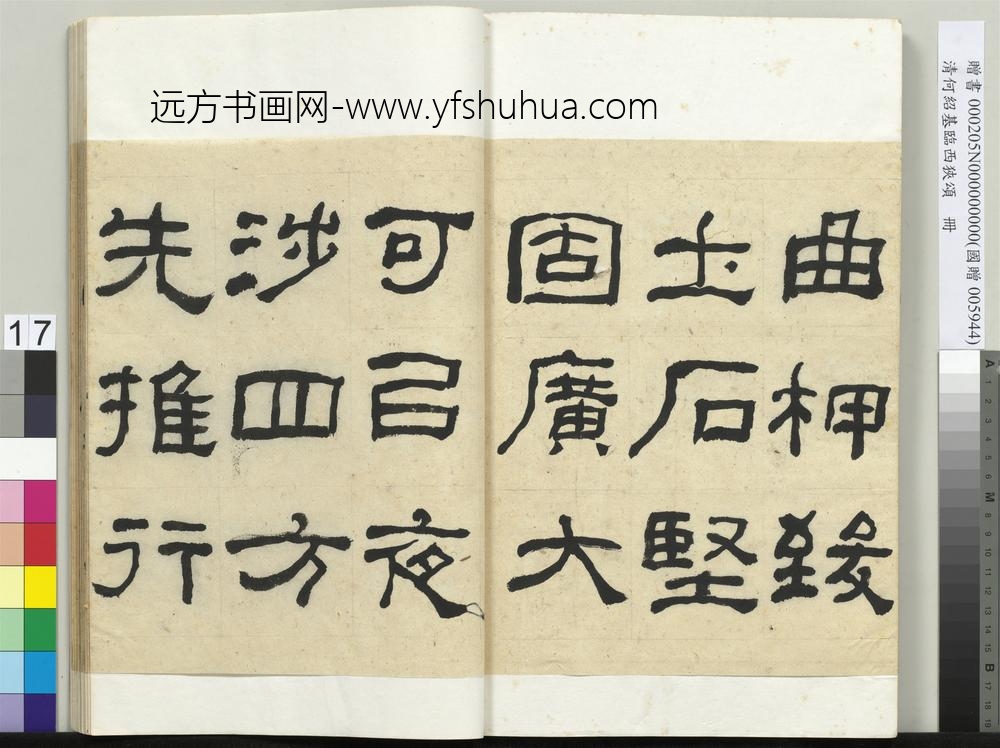 远方书画网-www.yfshuhua.com
贈書 000205N000000000(國贈 005944)
清何紹基臨西狹頌 冊
曲柙致
土石堅
固廣大
可㠯夜
涉四方
先推行
17
A 1 2 3 4 5 6 M 8 9 10 11 12 13 14 15 B 17 18 19